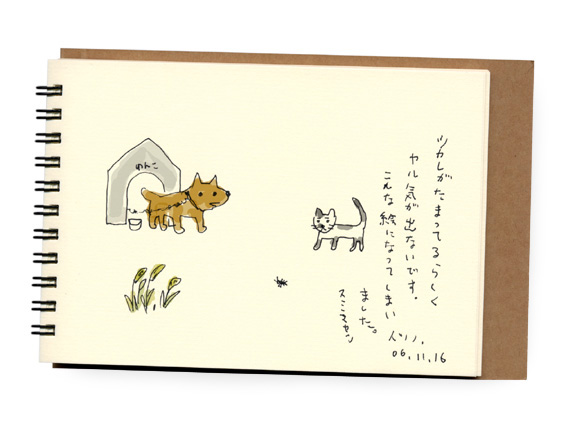 ツカレがたまってるらしく
ヤル気が出ないです。
こんな絵になってしまい
ました。
スミマセン
06.11.16
めんこ